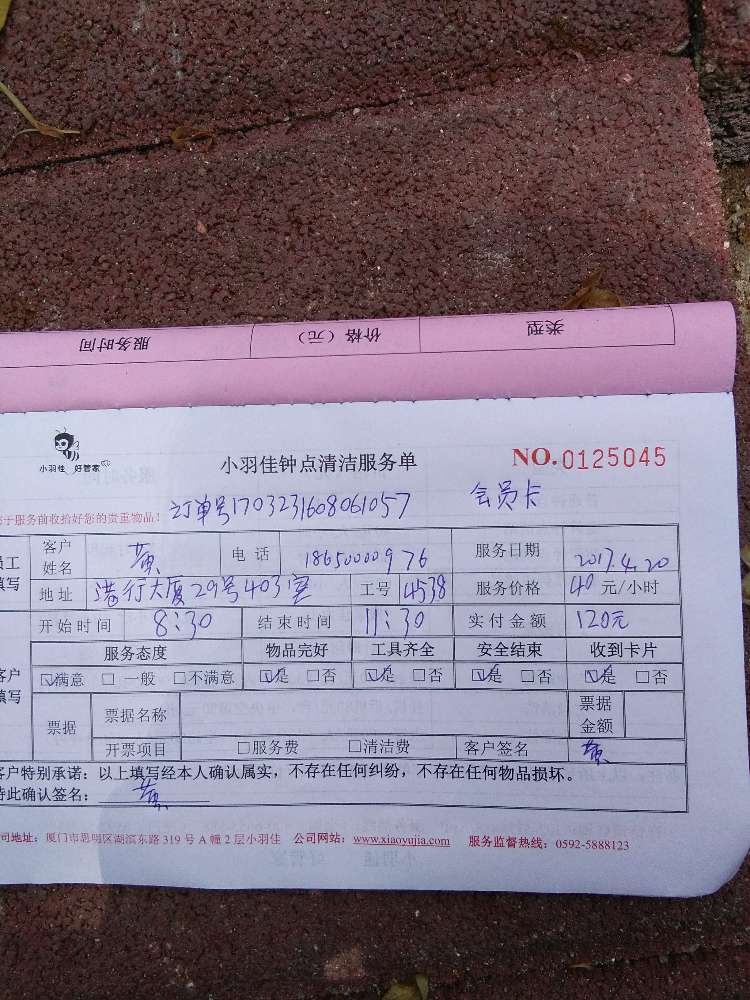 服务时间 价格（元） 类型
小羽佳 好管家
小羽佳钟点清洁服务单 NO.0125045
于服务前收拾好您的贵重物品！ 订单号1703231608061057 会员卡
员工填写 客户姓名 黄 电话 18650000976 服务日期 2017.4.20
地址 港行大厦29号403室 工号 4538 服务价格 40元/小时
开始时间 8:30 结束时间 11:30 实付金额 120元
客户填写 服务态度 物品完好 工具齐全 安全结束 收到卡片
☑满意 □一般 □不满意 ☑是 □否 ☑是 □否 ☑是 □否 ☑是 □否
票据 票据名称 票据金额
开票项目 □服务费 □清洁费 客户签名 黄
客户特别承诺：以上填写经本人确认属实，不存在任何纠纷，不存在任何物品损坏。
特此确认签名： 黄
司地址：厦门市思明区湖滨东路319号A幢2层小羽佳 公司网站：www.xiaoyujia.com 服务监督热线：0592-5888123